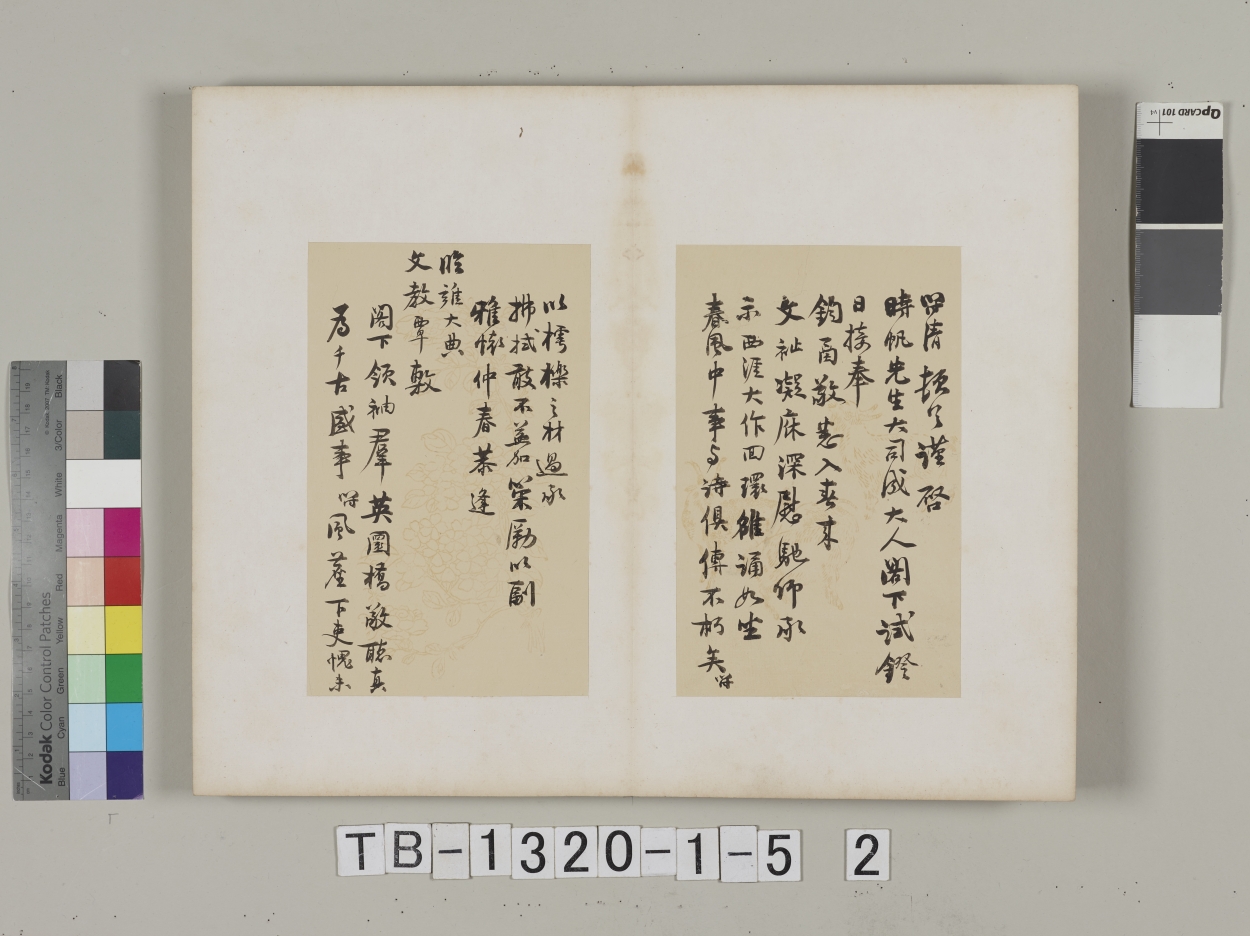 時帆先生大司成大人閣下試鐙
日接奉
鈞函敬悉入春来
文祉凝庥深慰馳仰承
示西涯大作回環雒誦如坐
春風中事与詩俱傳不朽矣
以樗櫟之材過承
拂拭敢不益加策勵以副
雅懷仲春恭逢
臨雍大典
文教覃敷
閣下領袖羣英圜橋敬聽真
為千古盛事 風塵下吏愧未
TB-1320-1-5 2
QpCARD 101 v4
Kodak Color Control Patches
Blue Cyan Green Yellow Red Magenta White 3/Color Black